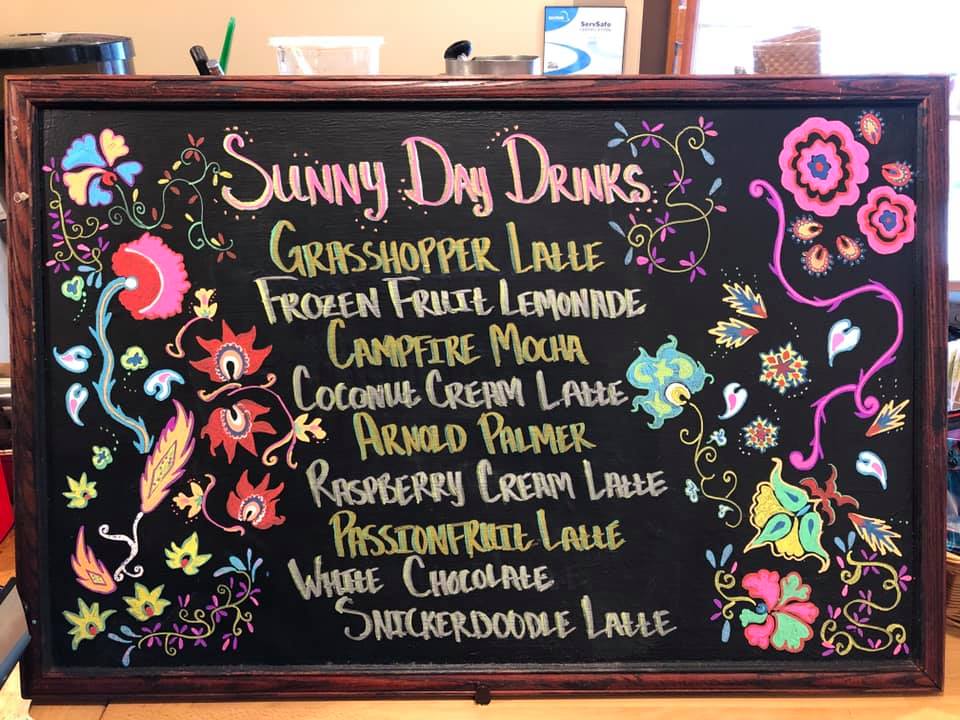 ServSafe
SUNNY DAY DRINKS
GRASSHOPPER LATTE
FROZEN FRUIT LEMONADE
CAMPFIRE MOCHA
COCONUT CREAM LATTE
ARNOLD PALMER
RASPBERRY CREAM LATTE
PASSIONFRUIT LATTE
WHITE CHOCOLATE
SNICKERDOODLE LATTE